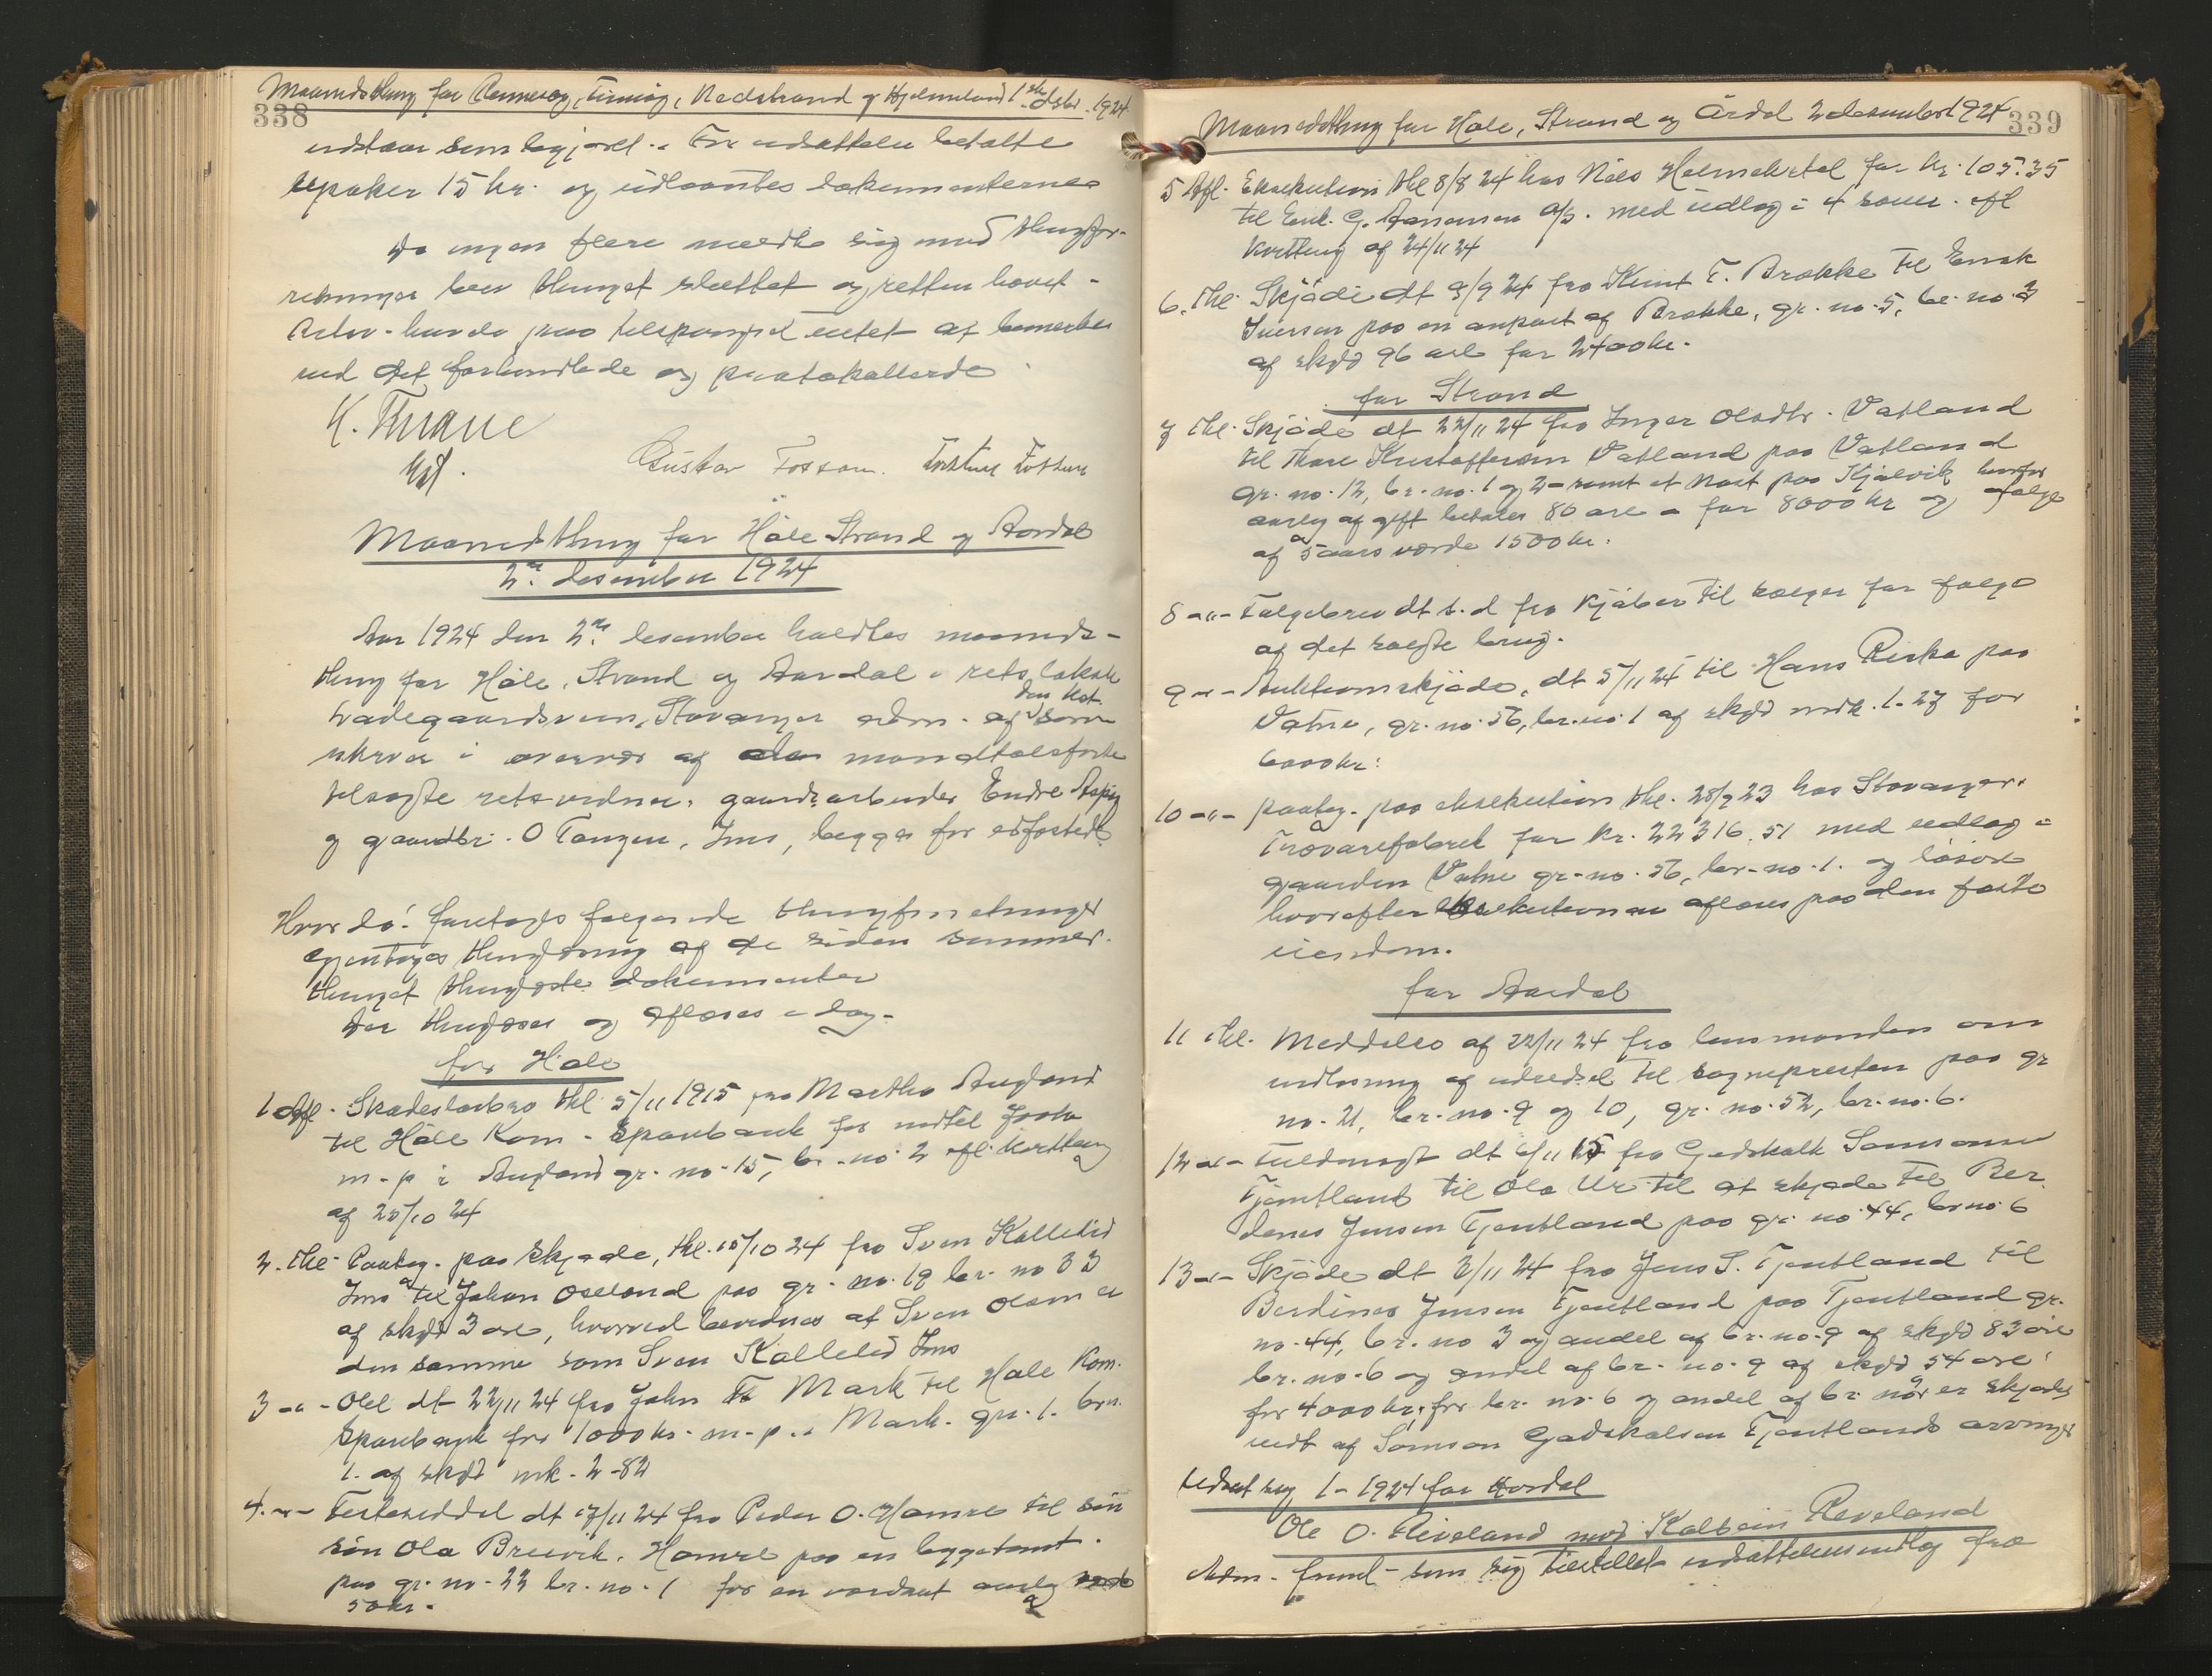 Maanedsthing for Rennesøy, Finnøy, Nedstrand og Hjelmeland 1ste dsbr. 1924
338
udstaar som begjæret. For udsættelse betalte
15 kr. og utlaantes dokumenterne
Da ingen flere meldte sig med thingfor-
retninger blev thinget sluttet og retten hævet -
havde paa tilspørgsel intet at bemerke
ved det forhandlede og protokollerede
K. Thrane
kst.
Gustav Fossan. Torsten Fossan
Maanedsthing for Høle Strand og Aardal
2n desember 1924
Aar 1924 den 2n desember holdtes maaneds-
thing for Høle, Strand og Aardal i retslokalet
Ladegaardsveien, Stavanger adm. af den kst. sorenskriver
i overvær af de mandtalsførte
tilsagte retsvidner, gaardsarbeider Endre
og gaardbr. O Tangen, Ims, begge før edfæstede
Hvor da: foretoges følgende thingforretninger
gjentoges thinglæsning af de siden sommer-
thinget thinglæste dokumenter
Der thinglæses og aflæses i dag -
for Høle
1 Afl. Skadesløsbrev thl 5/11 1915 fra Martha Augland
til Høle Kom. Sparebank for
m. p. i Augland gr. no. 15, br. no. 2 efl. kvittering
af 20/10 24
2. Thl. Paateg. paa skjøde, thl. 10/10 24 fra Sven Kallelid
Ims til Johan Oseland paa gr. no. 19 br. no 33
af skyld 3 øre, hvorved bevidnes at Sven Olsen er
den samme som Sven Kallelid Ims
3 -"- Obl dt 22/11 24 fra John Mark til Høle Kom.
Sparebank for 1000 kr. m. p. i Mark. gn. 1. brn.
1. af skyld mk. 2-82
4. -"- Festeseddel dt 17/11 24 fra Peder O. Hamre til sin
søn Ola Breivik, Hamre paa en byggetomt
paa gr. no. 22 br. no. 1 for en aarlig
50 kr.
Maanedsthing for Høle, Strand og Årdal 2 desember 1924
339
5 Afl. Eksekution thl 8/8 24 hos Nils Holmekvæl for kr. 105.35
til Enk. G. Aanensen A/S. med udlæg i 4 sauer. efl
kvittering af 24/11 24
6. Thl. Skjøde dt 9/9 24 fra Knut T. Brække til Enok
Iversen paa en anpart af Brække, gr. no. 5, br. no. 3
af skyld 96 øre for 2400 kr.
for Strand
7 Thl. Skjøde dt 22/11 24 fra Inger Olsdtr. Vatland
til Thore Kristoffersen Vatland paa Vatland
gr. no. 12, br. no. 1 og 2 - samt et nøst paa Kjølevik hvorfor
aarlig afgift betales 80 øre - for 8000 kr og følge
af 5 aars værde 1500 kr.
8 -"- Følgebrev dt s. d fra kjøber til sælger for følge
af det solgte brug.
9 -"- Auktionsskjøde, dt 5/11 24 til Hans Riska paa
Vatne, gr. no. 56, br. no. 1 af skyld mrk. 1.27 for
6000 kr.
10 -"- Paateg. paa eksekution thl. 28/9 23 hos Stavanger
Trævarefabrik for kr. 22316.51 med udlæg i
gaarden Vatne gr. no. 56, br. no. 1. og løsøre
hvorefter eksekutionen aflæses paa den faste
eiendom.
for Aardal
11 Thl. Meddelelse af 22/11 24 fra lensmanden om
indløsning af udredsel til sognepresten paa gr
no. 21, br. no. 9 og 10, gr. no. 52, br. no. 6.
12 -"- Fuldmagt dt 6/11 15 fra Gudskalk Samsonsen
Tjentland til Ola Ur til at skjøde til Ber-
dines Jensen Tjentland paa gr. no. 44, br. no. 6
13 -"- Skjøde dt 3/11 24 fra Jens S. Tjentland til
Berdines Jensen Tjentland paa Tjentland gr.
no. 44, br. no 3 og andel af br. no. 9 af skyld 83 øre
br. no. 6 og andel af br. no. 9 af skyld 54 øre
for 4000 kr, for br. no. 6 og andel af br. no 9 er skjødet
udst af Samson Gudskalksen Tjentlands arvinger
1-1924 for Aardal
Ole O. Riveland mod Kolbein Riveland
Adm. freml. som sig tilstillet udsættelsesindlæg fra